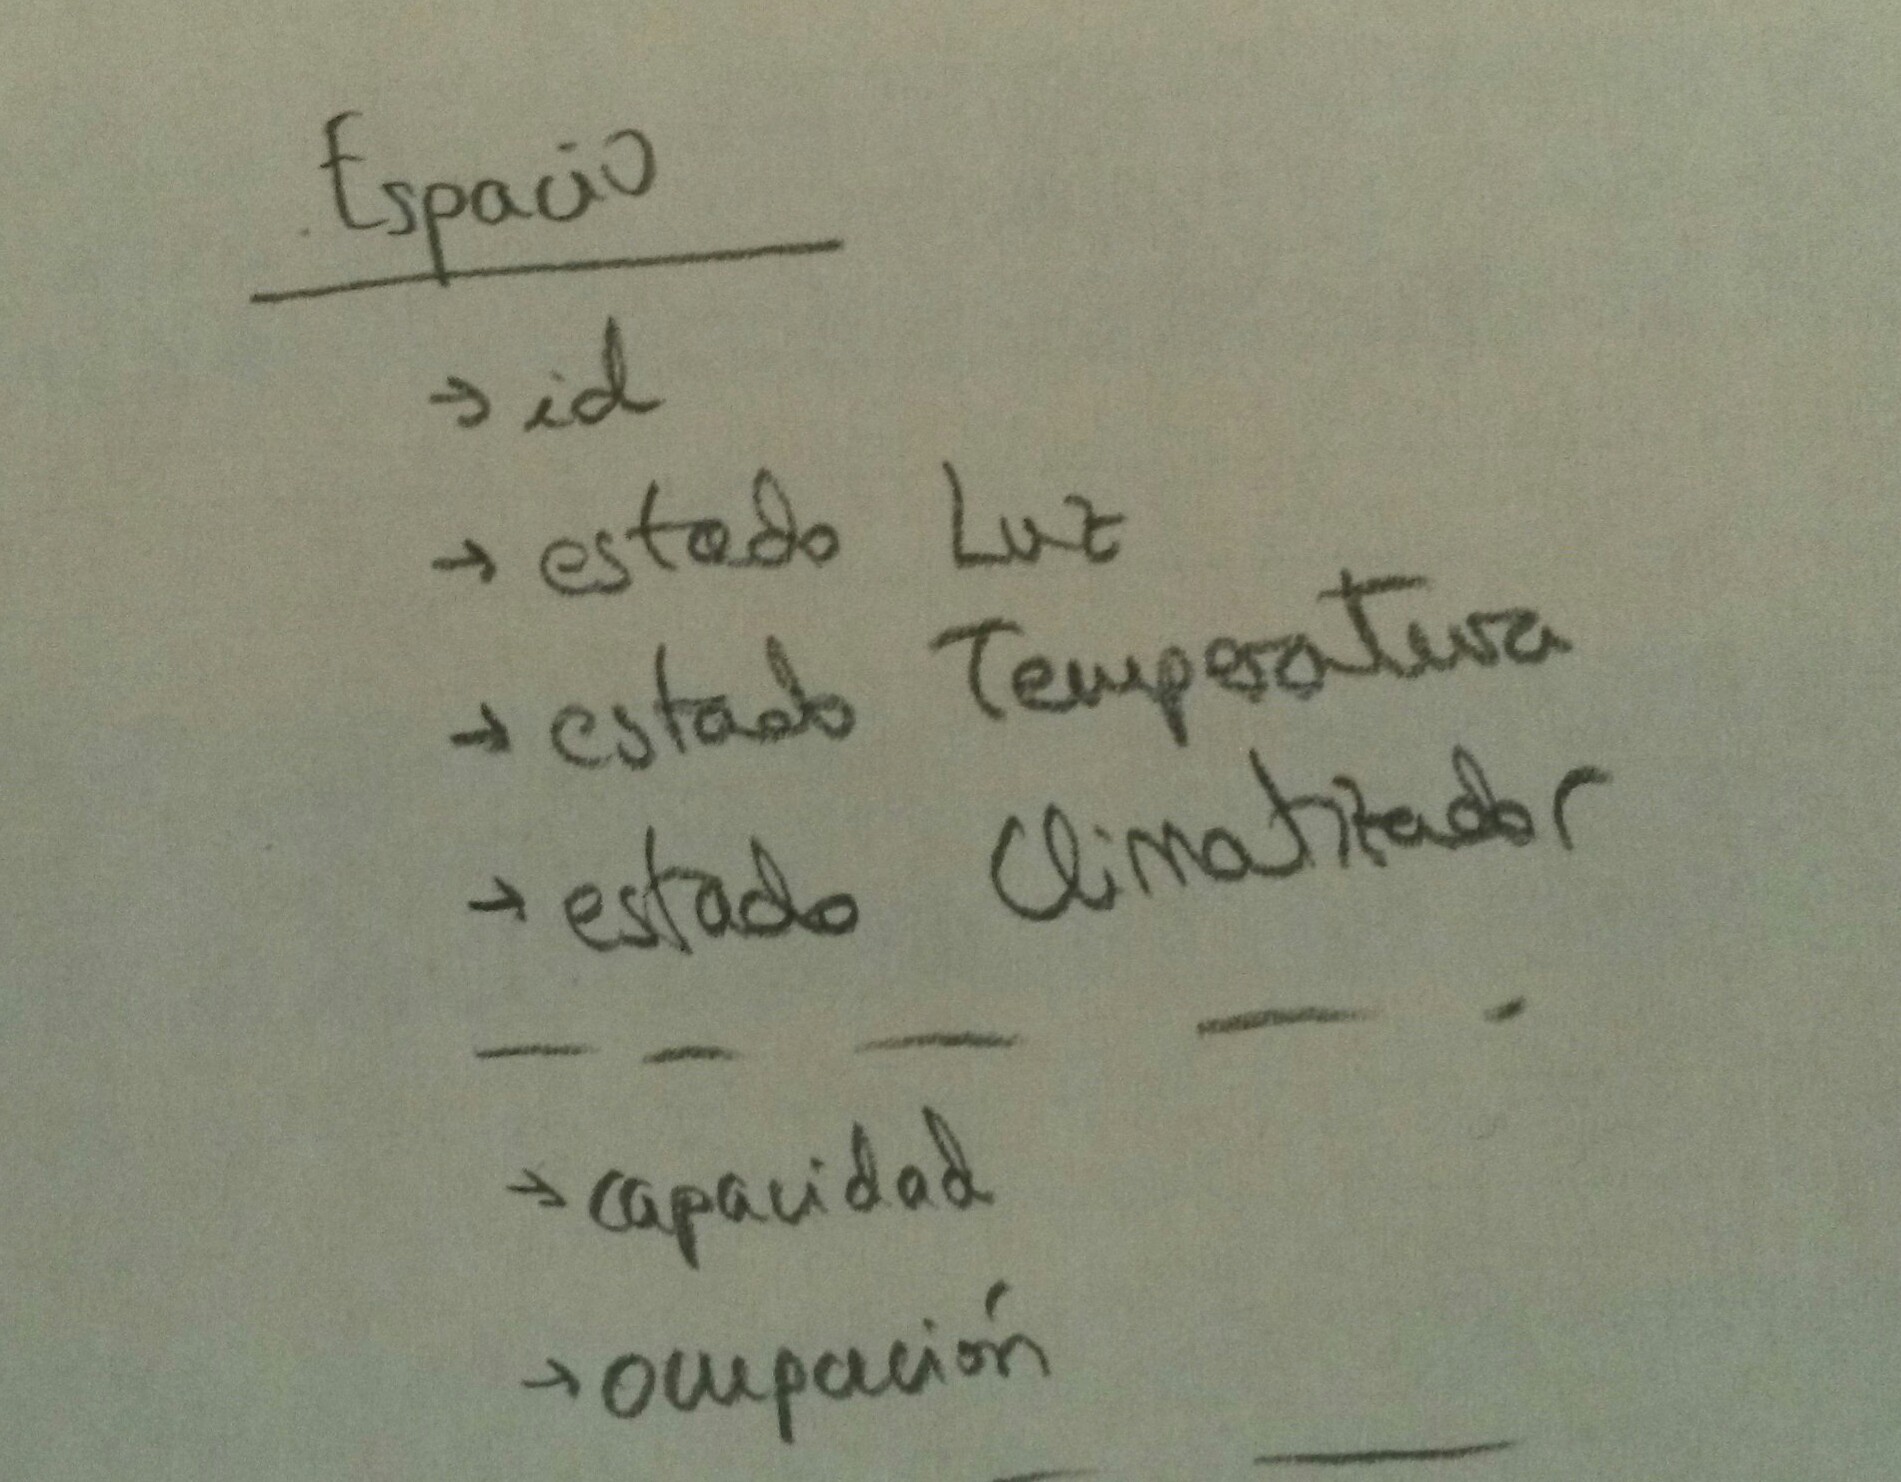 Espacio
→ id
→ estado Luz
→ estado Temperatura
→ estado Climatizador
→ capacidad
→ ocupación